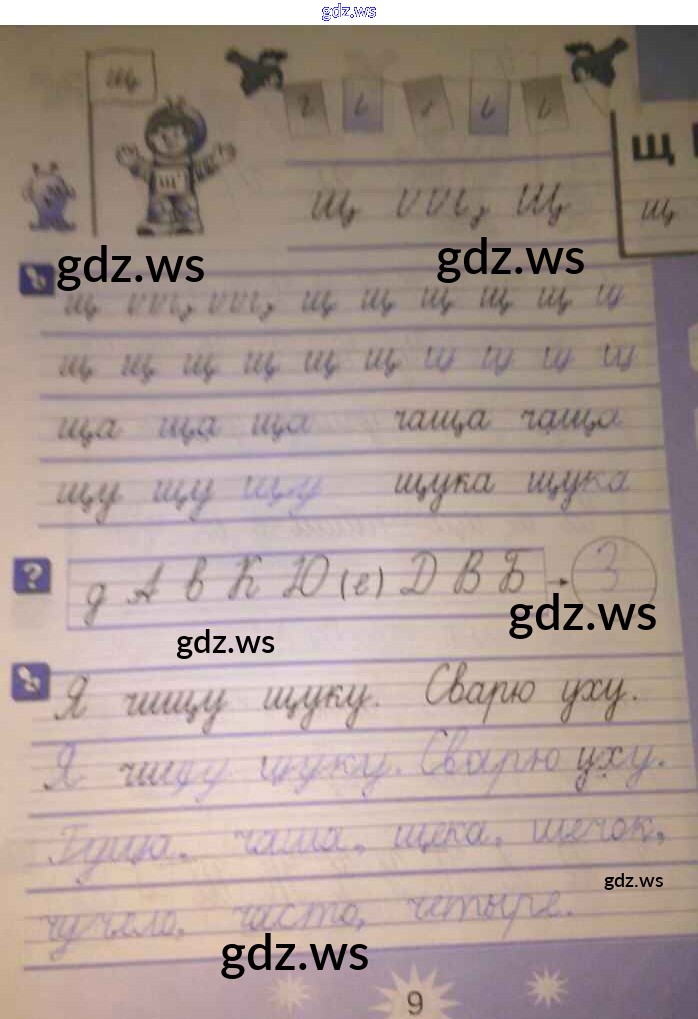 gdz.ws
щ
щ Щ
Щ
щ
gdz.ws gdz.ws
щ щ щ щ щ щ
щ щ щ щ щ щ
ща ща ща чаща чаща
щу щу щу щука щука
? д А в К Ю (е) Д В Б З
gdz.ws gdz.ws
Я чищу щуку. Сварю уху.
Я чищу щуку. Сварю уху.
чаша, щека, щечок,
gdz.ws
чучело, часто, четыре.
gdz.ws
9